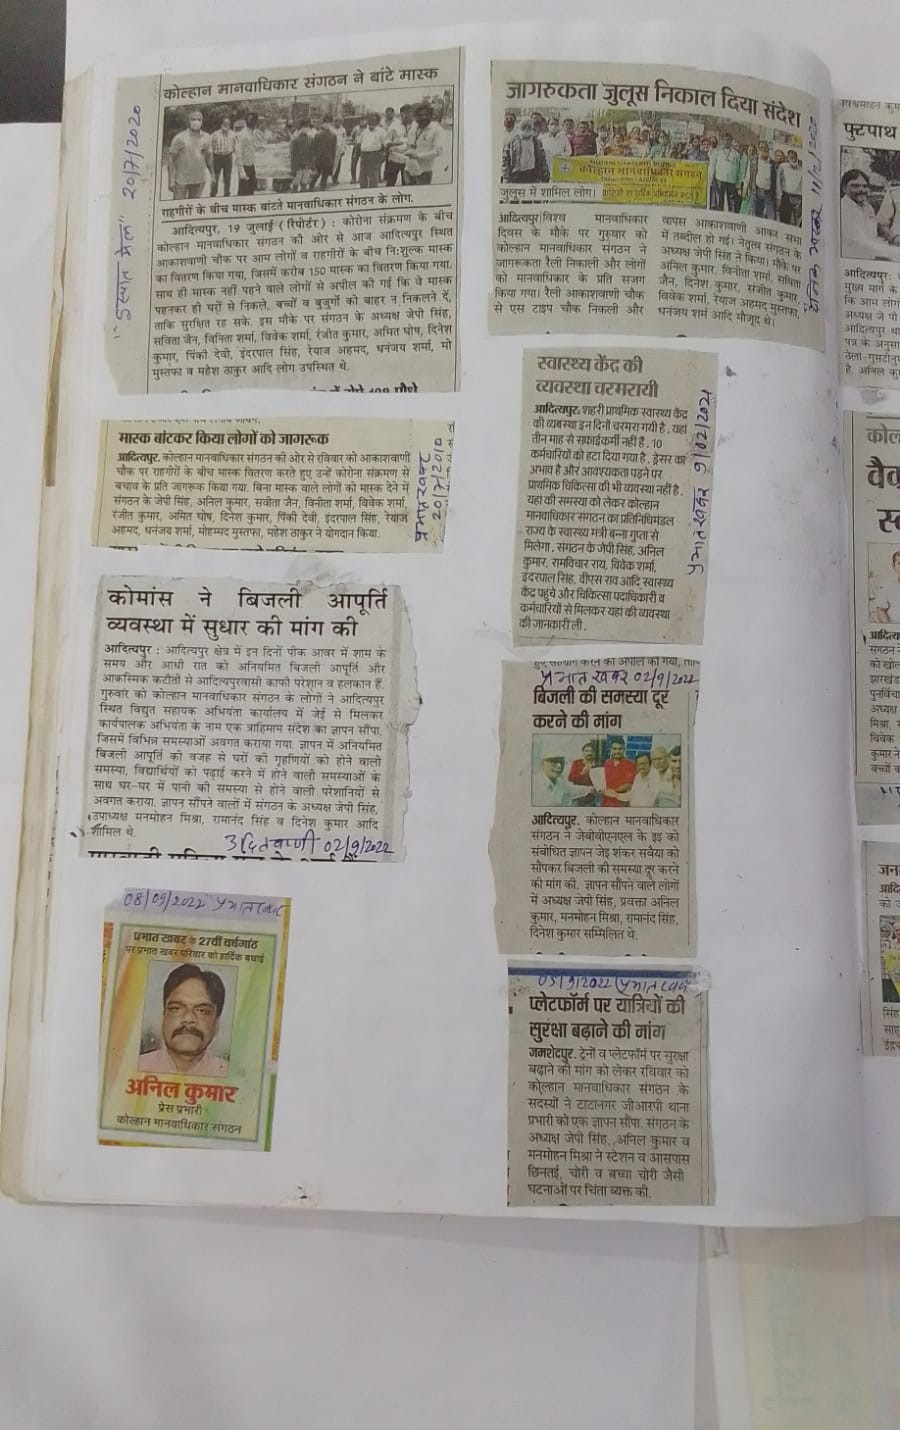 कोल्हान मानवाधिकार संगठन ने बांटे मास्क
राहगीरों के बीच मास्क बांटते मानवाधिकार संगठन के लोग.
आदित्यपुर, 19 जुलाई (रिपोर्टर) : कोरोना संक्रमण के बीच
कोल्हान मानवाधिकार संगठन की ओर से आज आदित्यपुर स्थित
आकाशवाणी चौक पर आम लोगों व राहगीरों के बीच नि:शुल्क मास्क
का वितरण किया गया, जिसमें करीब 150 मास्क का वितरण किया गया.
साथ ही मास्क नहीं पहने वाले लोगों से अपील की गई कि वे मास्क
पहनकर ही घरों से निकले, बच्चों व बुजुर्गो को बाहर न निकलने दें,
ताकि सुरक्षित रह सके. इस मौके पर संगठन के अध्यक्ष जेपी सिंह,
सविता जैन, विनिता शर्मा, विवेक शर्मा, रंजीत कुमार, अमित घोष, दिनेश
कुमार, पिंकी देवी, इंदरपाल सिंह, रेयाज अहमद, धनंजय शर्मा, मो
मुस्तफा व महेश ठाकुर आदि लोग उपस्थित थे.
20/7/2020
मास्क बांटकर किया लोगों को जागरूक
आदित्यपुर. कोल्हान मानवाधिकार संगठन की ओर से रविवार को आकाशवाणी
चौक पर राहगीरों के बीच मास्क वितरण करते हुए उन्हें कोरोना संक्रमण से
बचाव के प्रति जागरूक किया गया. बिना मास्क वाले लोगों को मास्क देने में
संगठन के जेपी सिंह, अनिल कुमार, सवीता जैन, विनीता शर्मा, विवेक शर्मा,
रंजीत कुमार, अमित घोष, दिनेश कुमार, पिंकी देवी, इंदरपाल सिंह, रेयाज
अहमद, धनंजय शर्मा, मोहम्मद मुस्तफा, महेश ठाकुर ने योगदान किया.
प्रभात खबर
कोमांस ने बिजली आपूर्ति
व्यवस्था में सुधार की मांग की
आदित्यपुर : आदित्यपुर क्षेत्र में इन दिनों पीक आवर में शाम के
समय और आधी रात को अनियमित बिजली आपूर्ति और
आकस्मिक कटौती से आदित्यपुरवासी काफी परेशान व हलकान हैं.
गुरुवार को कोल्हान मानवाधिकार संगठन के लोगों ने आदित्यपुर
स्थित विद्युत सहायक अभियंता कार्यालय में जेई से मिलकर
कार्यपालक अभियंता के नाम एक त्राहिमाम संदेश का ज्ञापन सौंपा,
जिसमें विभिन्न समस्याओं अवगत कराया गया. ज्ञापन में अनियमित
बिजली आपूर्ति की वजह से घरों की गृहणियों को होने वाली
समस्या, विद्यार्थियों को पढ़ाई करने में होने वाली समस्याओं के
साथ घर-घर में पानी की समस्या से होने वाली परेशानियों से
अवगत कराया. ज्ञापन सौंपने वालों में संगठन के अध्यक्ष जेपी सिंह,
उपाध्यक्ष मनमोहन मिश्रा, रामानंद सिंह व दिनेश कुमार आदि
शामिल थे.
उदितवाणी 02/9/2022
08/09/2022 प्रभात खबर
प्रभात खबर के 27वीं वर्षगांठ
पर प्रभात खबर परिवार को हार्दिक बधाई
अनिल कुमार
प्रेस प्रभारी
कोल्हान मानवाधिकार संगठन
जागरुकता जुलूस निकाल दिया संदेश
कोल्हान मानवाधिकार संगठन
जुलूस में शामिल लोग।
आदित्यपुर| विश्व मानवाधिकार
दिवस के मौके पर गुरुवार को
कोल्हान मानवाधिकार संगठन ने
जागरूकता रैली निकाली और लोगों
को मानवाधिकार के प्रति सजग
किया गया। रैली आकाशवाणी चौक
से एस टाइप चौक निकली और
वापस आकाशवाणी आकर सभा
में तब्दील हो गई। नेतृत्व संगठन के
अध्यक्ष जेपी सिंह ने किया। मौके पर
अनिल कुमार, विनीता शर्मा, सविता
जैन, दिनेश कुमार, संजीत कुमार,
विवेक शर्मा, रेयाज अहमद मुस्तफा,
धनंजय शर्मा आदि मौजूद थे।
दैनिक भास्कर
स्वास्थ्य केंद्र की
व्यवस्था चरमरायी
आदित्यपुर. शहरी प्राथमिक स्वास्थ्य केंद्र
की व्यवस्था इन दिनों चरमरा गयी है. यहां
तीन माह से सफाईकर्मी नहीं है. 10
कर्मचारियों को हटा दिया गया है. ड्रेसर का
अभाव है और आवश्यकता पड़ने पर
प्राथमिक चिकित्सा की भी व्यवस्था नहीं है.
यहां की समस्या को लेकर कोल्हान
मानवाधिकार संगठन का प्रतिनिधिमंडल
राज्य के स्वास्थ्य मंत्री बन्ना गुप्ता से
मिलेगा. संगठन के जेपी सिंह, अनिल
कुमार, रामविचार राय, विवेक शर्मा,
इंदरपाल सिंह, वीएस राव आदि स्वास्थ्य
केंद्र पहुंचे और चिकित्सा पदाधिकारी व
कर्मचारियों से मिलकर यहां की व्यवस्था
की जानकारी ली.
प्रभात खबर 9/02/2021
प्रभात खबर 02/9/2022
बिजली की समस्या दूर
करने की मांग
आदित्यपुर. कोल्हान मानवाधिकार
संगठन ने जेबीवीएनएल के इइ को
संबोधित ज्ञापन जेइ शंकर सवैया को
सौंपकर बिजली की समस्या दूर करने
की मांग की. ज्ञापन सौंपने वाले लोगों
में अध्यक्ष जेपी सिंह, प्रवक्ता अनिल
कुमार, मनमोहन मिश्रा, रामानंद सिंह,
दिनेश कुमार सम्मिलित थे.
प्रभात खबर
प्लेटफॉर्म पर यात्रियों की
सुरक्षा बढ़ाने की मांग
जमशेदपुर. ट्रेनों व प्लेटफॉर्म पर सुरक्षा
बढ़ाने की मांग को लेकर रविवार को
कोल्हान मानवाधिकार संगठन के
सदस्यों ने टाटानगर जीआरपी थाना
प्रभारी को एक ज्ञापन सौंपा. संगठन के
अध्यक्ष जेपी सिंह, अनिल कुमार व
मनमोहन मिश्रा ने स्टेशन व आसपास
छिनतई, चोरी व बच्चा चोरी जैसी
घटनाओं पर चिंता व्यक्त की.
फुटपाथ